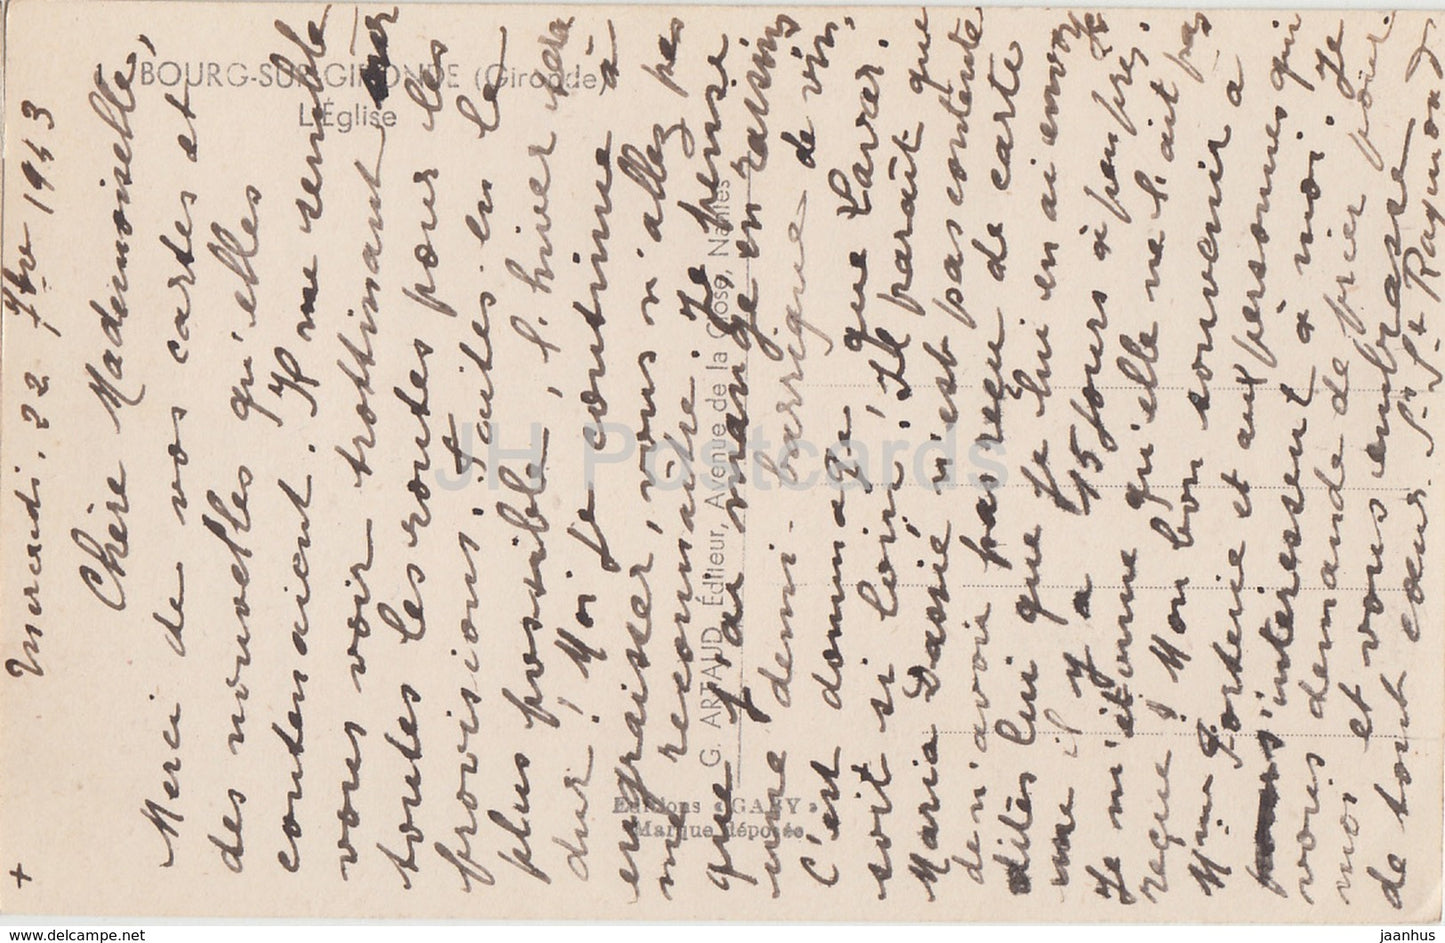 +
Mercredi. 22 7bre 1943
Chère Mademoiselle,
Merci de vos cartes et
des nouvelles qu'elles
contenaient. Il me semble
vous voir trottinant sur
toutes les routes pour les
provisions. Faites en le
plus possible, l'hiver sera
dur! Moi je continue à
engraisser, vous n'allez pas
me reconnaître! Je pense
que j'ai mangé en raisins
une demi-barrique de vin.
C'est dommage que Lavar.
soit si loin! Il paraît que
Maria Dassié n'est pas contente
de n'avoir pas reçu de carte
dîtes lui que je lui en ai envoyé
une il y a 15 jours à peu près. Je
Je m'étonne qu'elle ne l'ait pas
reçue! Mon bon souvenir à
Mme Forterie et aux personnes qui
s'intéressent à moi. Je
vous demande de prier pour
moi et vous embrasse
de tout cœur. Sr St Raymond
1 - BOURG-SUR-GIRONDE (Gironde)
L'Église
G. ARTAUD, Éditeur, Avenue de la Close, Nantes
Editions "GABY"
Marque déposée
JH Postcards
www.delcampe.net
jaanhus